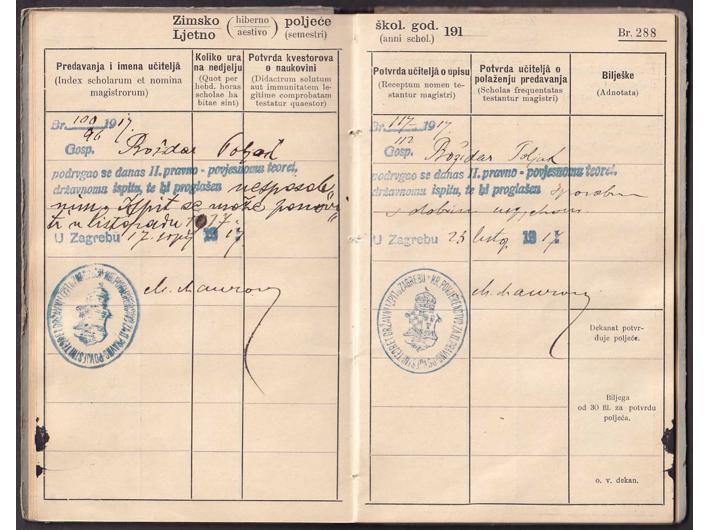 Zimsko (hiberno) poljeće
Ljetno (aestivo) (semestri)
Predavanja i imena učiteljâ
(Index scholarum et nomina
magistrorum)
Koliko ura
na nedjelju
(Quot per
hebd. horas
scholae ha
bitae sint)
Potvrda kvestorova
o naukovini
(Didactrum solutum
aut immunitatem le-
gitime comprobatam
testatur quaestor)
Br. 100/96 1917.
Gosp. Božidar Poljak
podvrgao se danas II. pravno - povjesnomu teoret.
državnomu ispitu, te bi proglašen nesposob
nim. Ispit se može ponovi
ti u listopadu 1917.
U Zagrebu 17. srpnja 1917
M. Maurović
škol. god. 191
(anni schol.)
Br. 288
Potvrda učiteljâ o upisu
(Receptum nomen te-
stantur magistri)
Potvrda učiteljâ o
polaženju predavanja
(Scholas frequentatas
testantur magistri)
Bilješke
(Adnotata)
Br. 117/112 1917.
Gosp. Božidar Poljak
podvrgao se danas II. pravno - povjesnomu teoret.
državnomu ispitu, te bi proglašen sposobnim
s dobrim uspjehom
U Zagrebu 23 listop. 1917.
M. Maurović
Dekanat potvr-
đuje poljeće.
Biljega
od 30 fil. za potvrdu
poljeća.
o. v. dekan.